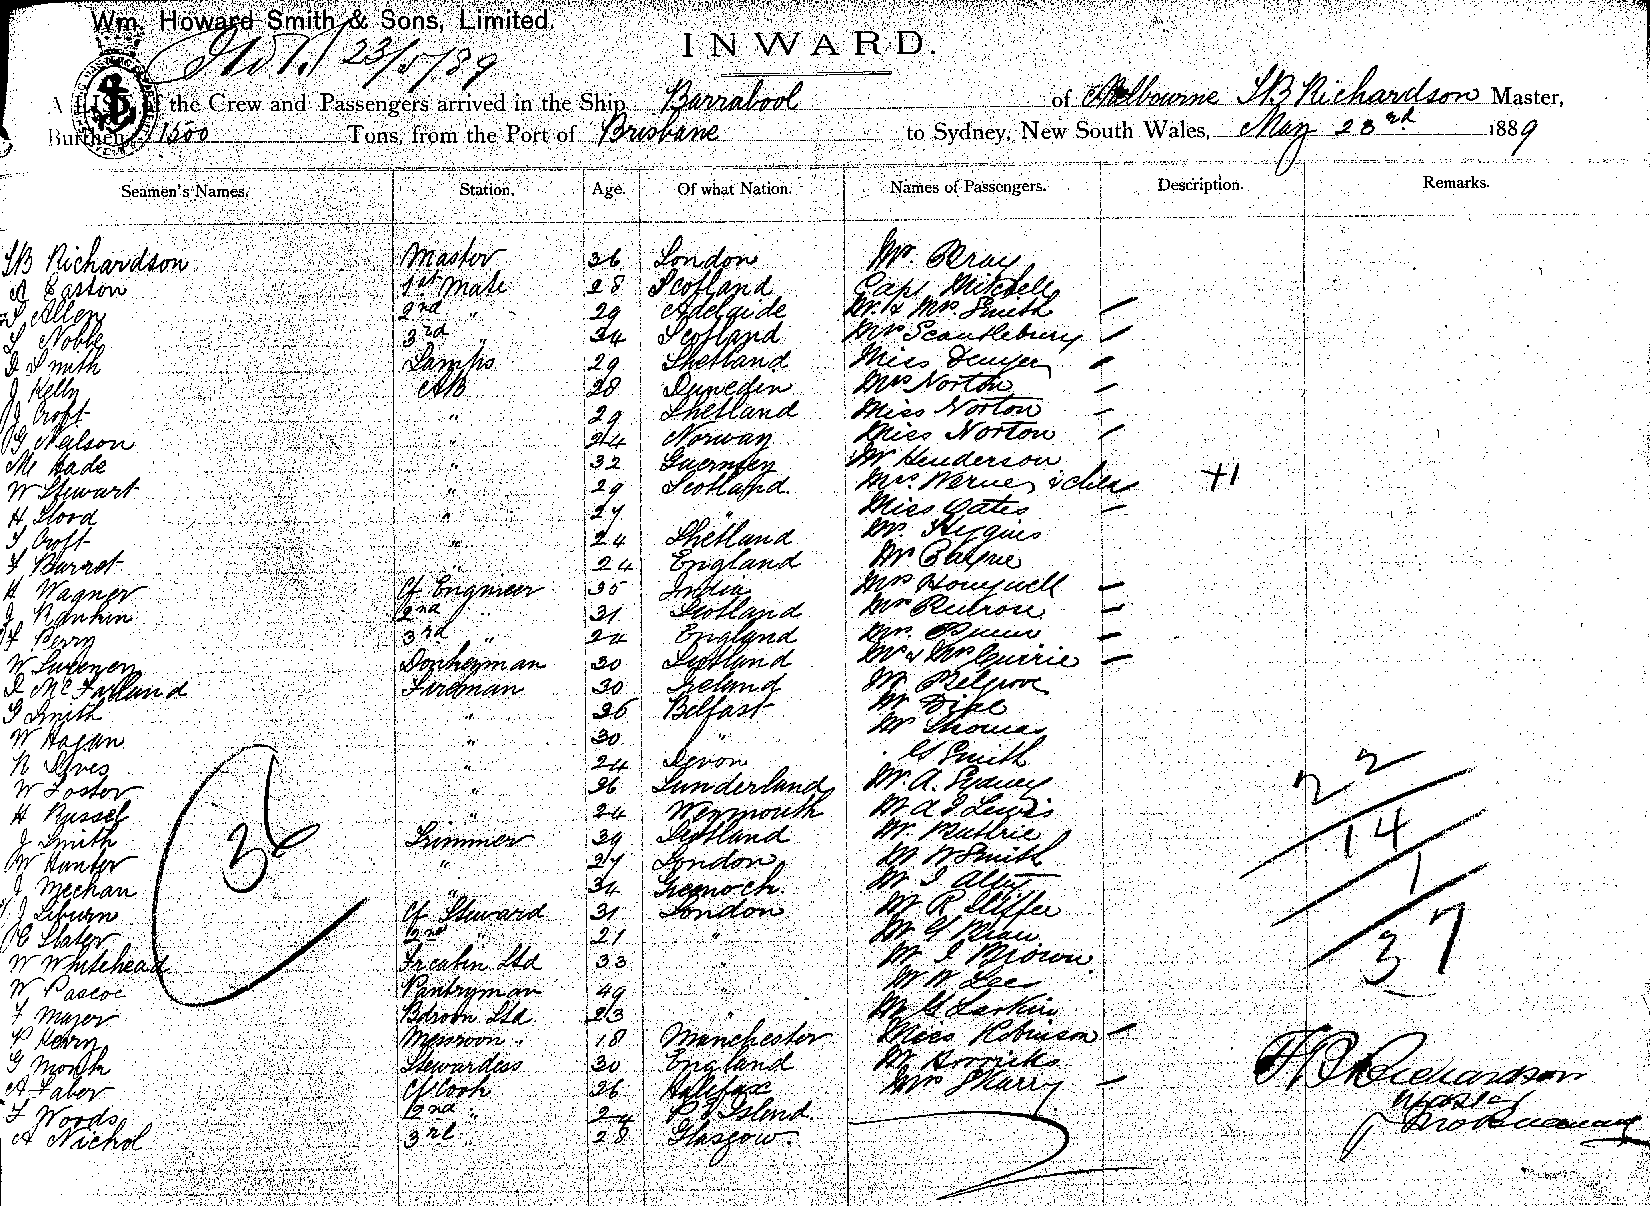 Wm. Howard Smith & Sons, Limited.
23/5/89
INWARD.
A LIST of the Crew and Passengers arrived in the Ship Barrabool of Melbourne Richardson Master,
Burthen 1500 Tons, from the Port of Brisbane to Sydney, New South Wales, May 23rd 1889
Seamen's Names. Station. Age. Of what Nation. Names of Passengers. Description. Remarks.
Richardson Master 36 London Mr. Bray
A Easton 1st Mate 28 Scotland Capt Mitchell
Allen 2nd " 29 Adelaide Mr. & Mrs. Smith
Noble 3rd " 34 Scotland Mrs Scantlebury
Smith Lamps 29 Shetland Miss Denyer
J Kelly AB 28 Dunedin Mrs Norton
J Croft " 29 Shetland Miss Norton
Neilson " 24 Norway Miss Norton
M Hade " 32 Guernsey Mr Henderson
W Stewart " 29 Scotland Mrs. Warner & child +1
H Flood " 27 " Miss Oates
Croft " 24 Shetland Mr. Higgins
Barret " 24 England Mr Bayne
H Wagner Cf Engineer 35 India Mrs Honeywell
J Rankin 2nd " 31 Scotland Mrs Penrose
Perry 3rd " 24 England Mrs.
W Donkeyman 30 Scotland Mr & Mrs Currie
McFarland Fireman 30 Ireland Mr Belgrove
Smith " 36 Belfast Mr Dixe
W Hogan " 30 " Mr Thomas
R Ives " 24 Devon Smith
W Foster " 26 Sunderland Mr. A. Sydney
H Russel " 24 Weymouth Mr A J Lewis
J Smith Trimmer 39 Scotland Mr. Guthrie
M Hunter " 27 London Mr W Smith
J Meehan " 34 Greenock Mr
J Liburn Cf Steward 31 London Mr R
Slater 2nd " 21 " Mr
W Whitehead Frcabin Std 33 " Mr J Brown
W Pascoe Pantryman 49 " Mr W Lee
Major Bdroom Std 23 " Mr G Larkin
P Henry Messroom " 18 Manchester Miss Robinson
G Month Stewardess 30 England Mr Horricks
A Tabor Cf Cook 36 Halifax Mrs Harry
F Woods 2nd " 24 P E Island
A Nichol 3rd " 28 Glasgow
36
22
14
1
37
Richardson
Master